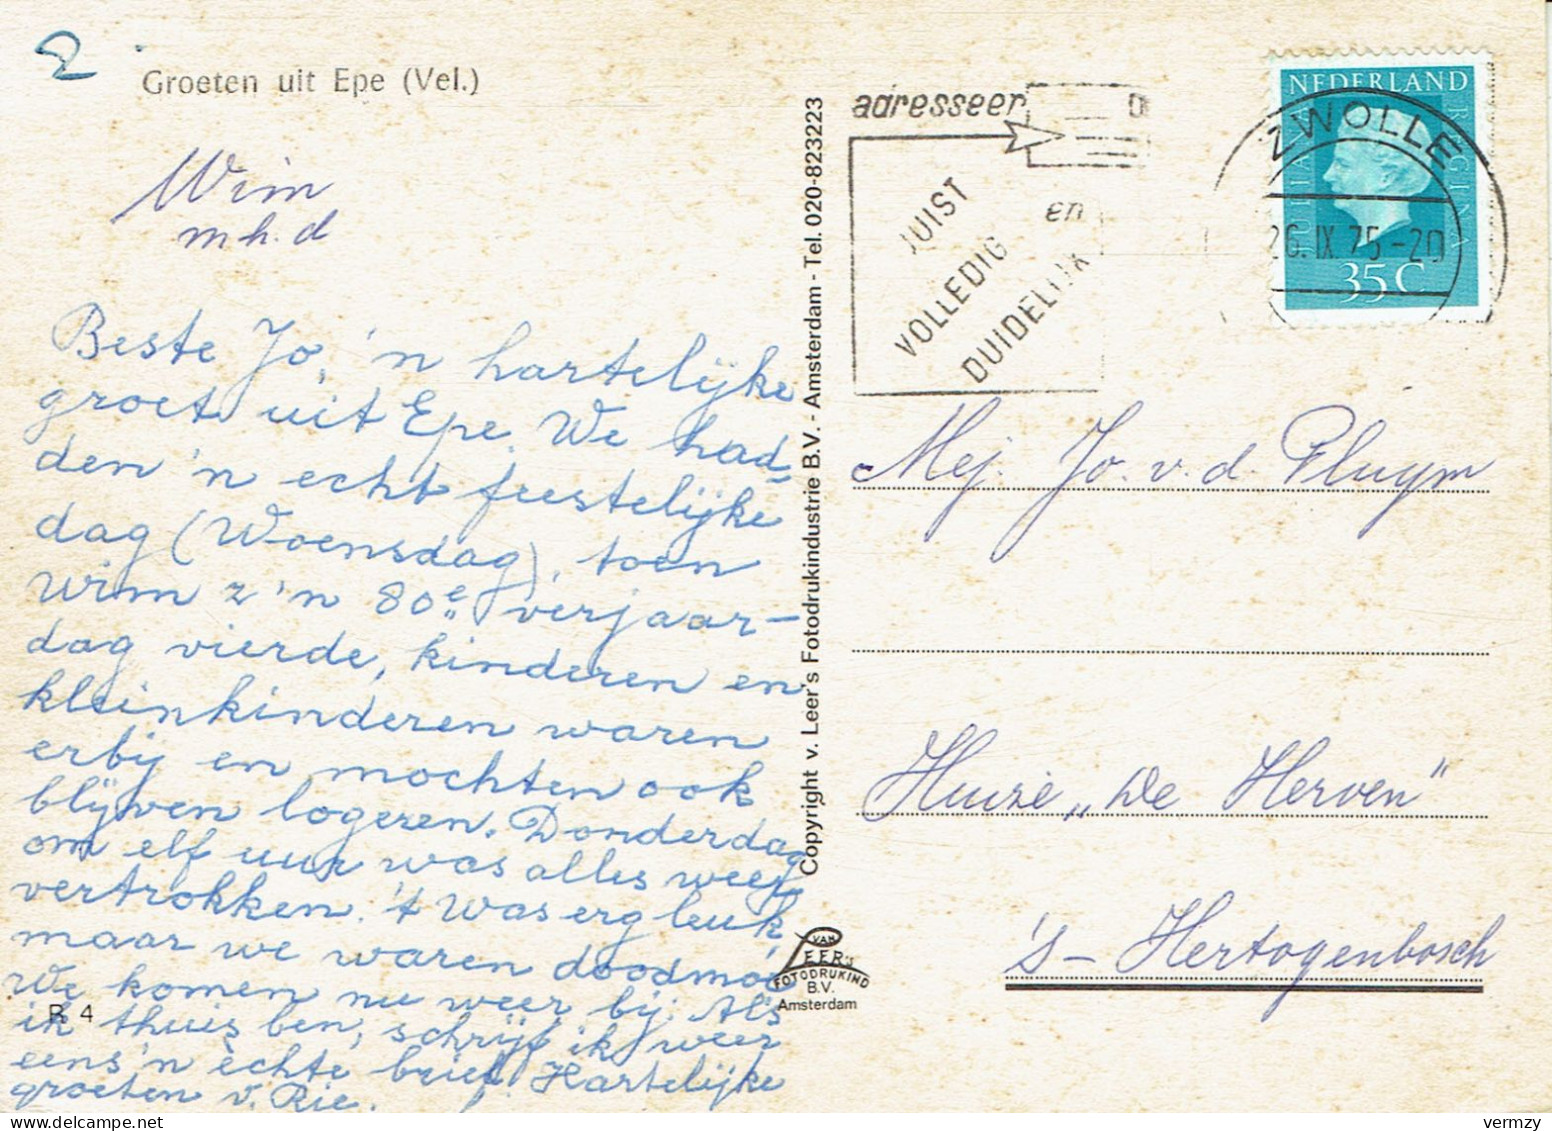 2
Groeten uit Epe (Vel.)
Wim
m.h.d
Beste Jo, 'n hartelijke
groet uit Epe. We had-
den 'n echt feestelijke
dag (Woensdag), toen
Wim z'n 80e verjaar-
dag vierde, kinderen en
kleinkinderen waren
erbij en mochten ook
blijven logeren. Donderdag
om elf uur was alles weer
vertrokken. 't Was erg leuk
maar we waren doodmoe
We komen nu weer bij. Als
ik thuis ben, schrijf ik weer
eens 'n èchte brief. Hartelijke
groeten v. Rie.
R 4
Copyright v. Leer's Fotodrukindustrie B.V. - Amsterdam - Tel. 020-823223
VAN
LEER's
FOTODRUKIND
B.V.
Amsterdam
adresseer
JUIST
VOLLEDIG en
DUIDELIJK
NEDERLAND
JULIANA REGINA
35 C
ZWOLLE
26.IX.75-20
Mej. Jo. v. d. Pluym
Huize „De Herven"
's-Hertogenbosch
vermzy